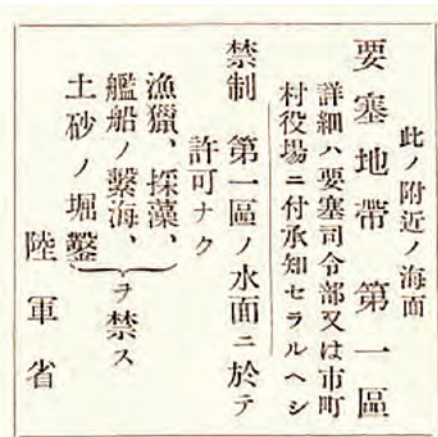 此ノ附近ノ海面
要塞地帶第一區
詳細ハ要塞司令部又は市町
村役場ニ付承知セラルヘシ
禁制 第一區ノ水面ニ於テ
許可ナク
漁獵、採藻、
艦船ノ繫海、
土砂ノ堀鑿
ヲ禁ス
陸軍省